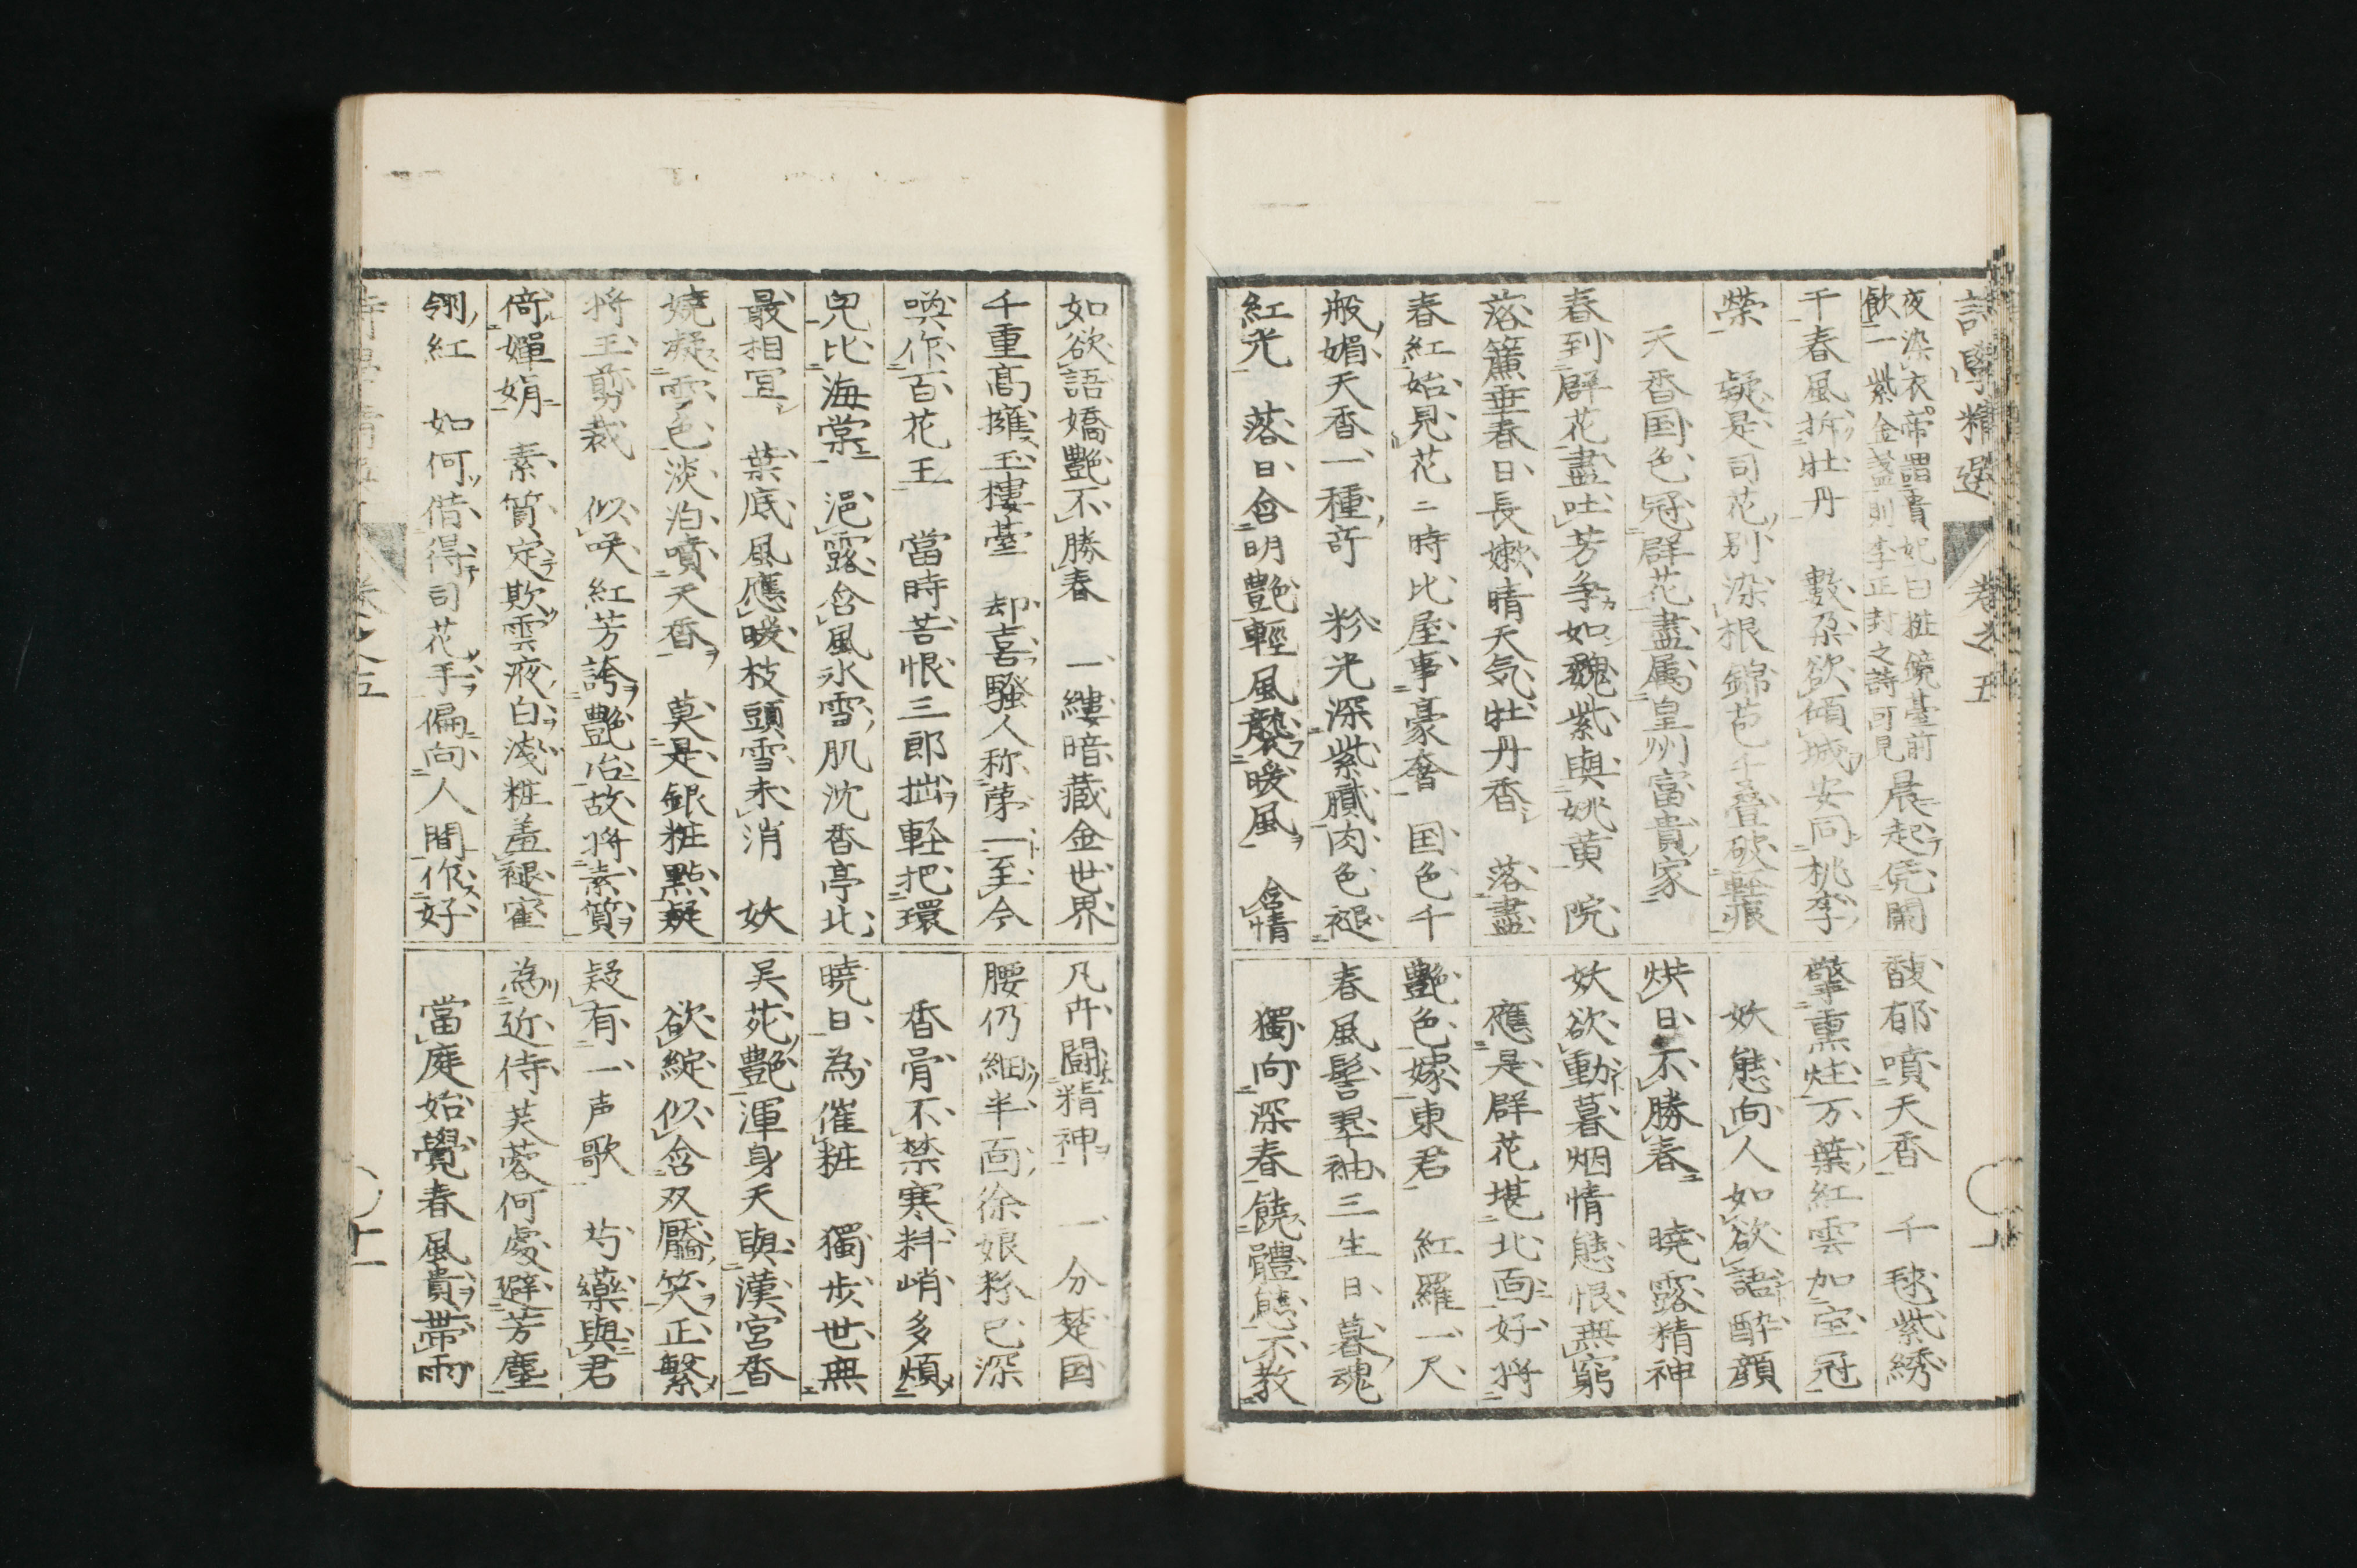 詩學精選　卷之五
夜染衣帝謂貴妃曰粧鏡臺前
飲一紫金盞則李正封之詩可見
晨起凭闌
干春風拆牡丹　數朶欲傾城安同桃李
榮　疑是司花別染根錦苞千叠破輕痕
天香国色冠群花盡属皇州富貴家
春到群花盡吐芳争如魏紫與姚黄　院
落簾垂春日長嫩晴天気牡丹香　落盡
春紅始見花二時比屋事豪奢　国色千
般媚天香一種奇　粉光深紫膩肉色褪
紅光　落日含明艶輕風裊暖風　含情
馥郁噴天香　千毬紫綉
擎熏炷万葉紅雲加宝冠
妖態向人如欲語醉顔
烘日不勝春　曉露精神
妖欲動暮烟情態恨無窮
應是群花堪北面好將
艶色嫁東君　紅羅一尺
春風髻翠袖三生日暮魂
獨向深春饒體態不教
如欲語嬌艶不勝春　一縷暗藏金世界
千重髙擁玉樓臺　却喜騷人称第一至今
喚作百花王　當時苦恨三郎拙軽把環
兒比海棠　浥露含風氷雪肌沈香亭北
最相冝　葉底風應暖枝頭雪未消　妖
嬈凝雪色淡泊噴天香　莫是銀粧點凝
將玉剪裁　似咲紅芳誇艶冶故將素質
倚嬋娟　素質定欺雲液白淺粧羞褪寉
翎紅　如何借得司花手偏向人間作好
凡卉闘精神　一分楚国
腰仍細半面徐娘粉已深
香骨不禁寒料峭多煩
曉日為催粧　獨步世無
吴苑艶渾身天與漢宮香
欲綻似含双靨笑正繫
疑有一声歌　芍藥與君
為近侍芙蓉何處避芳塵
當庭始覺春風貴帶雨
卷之五
十一